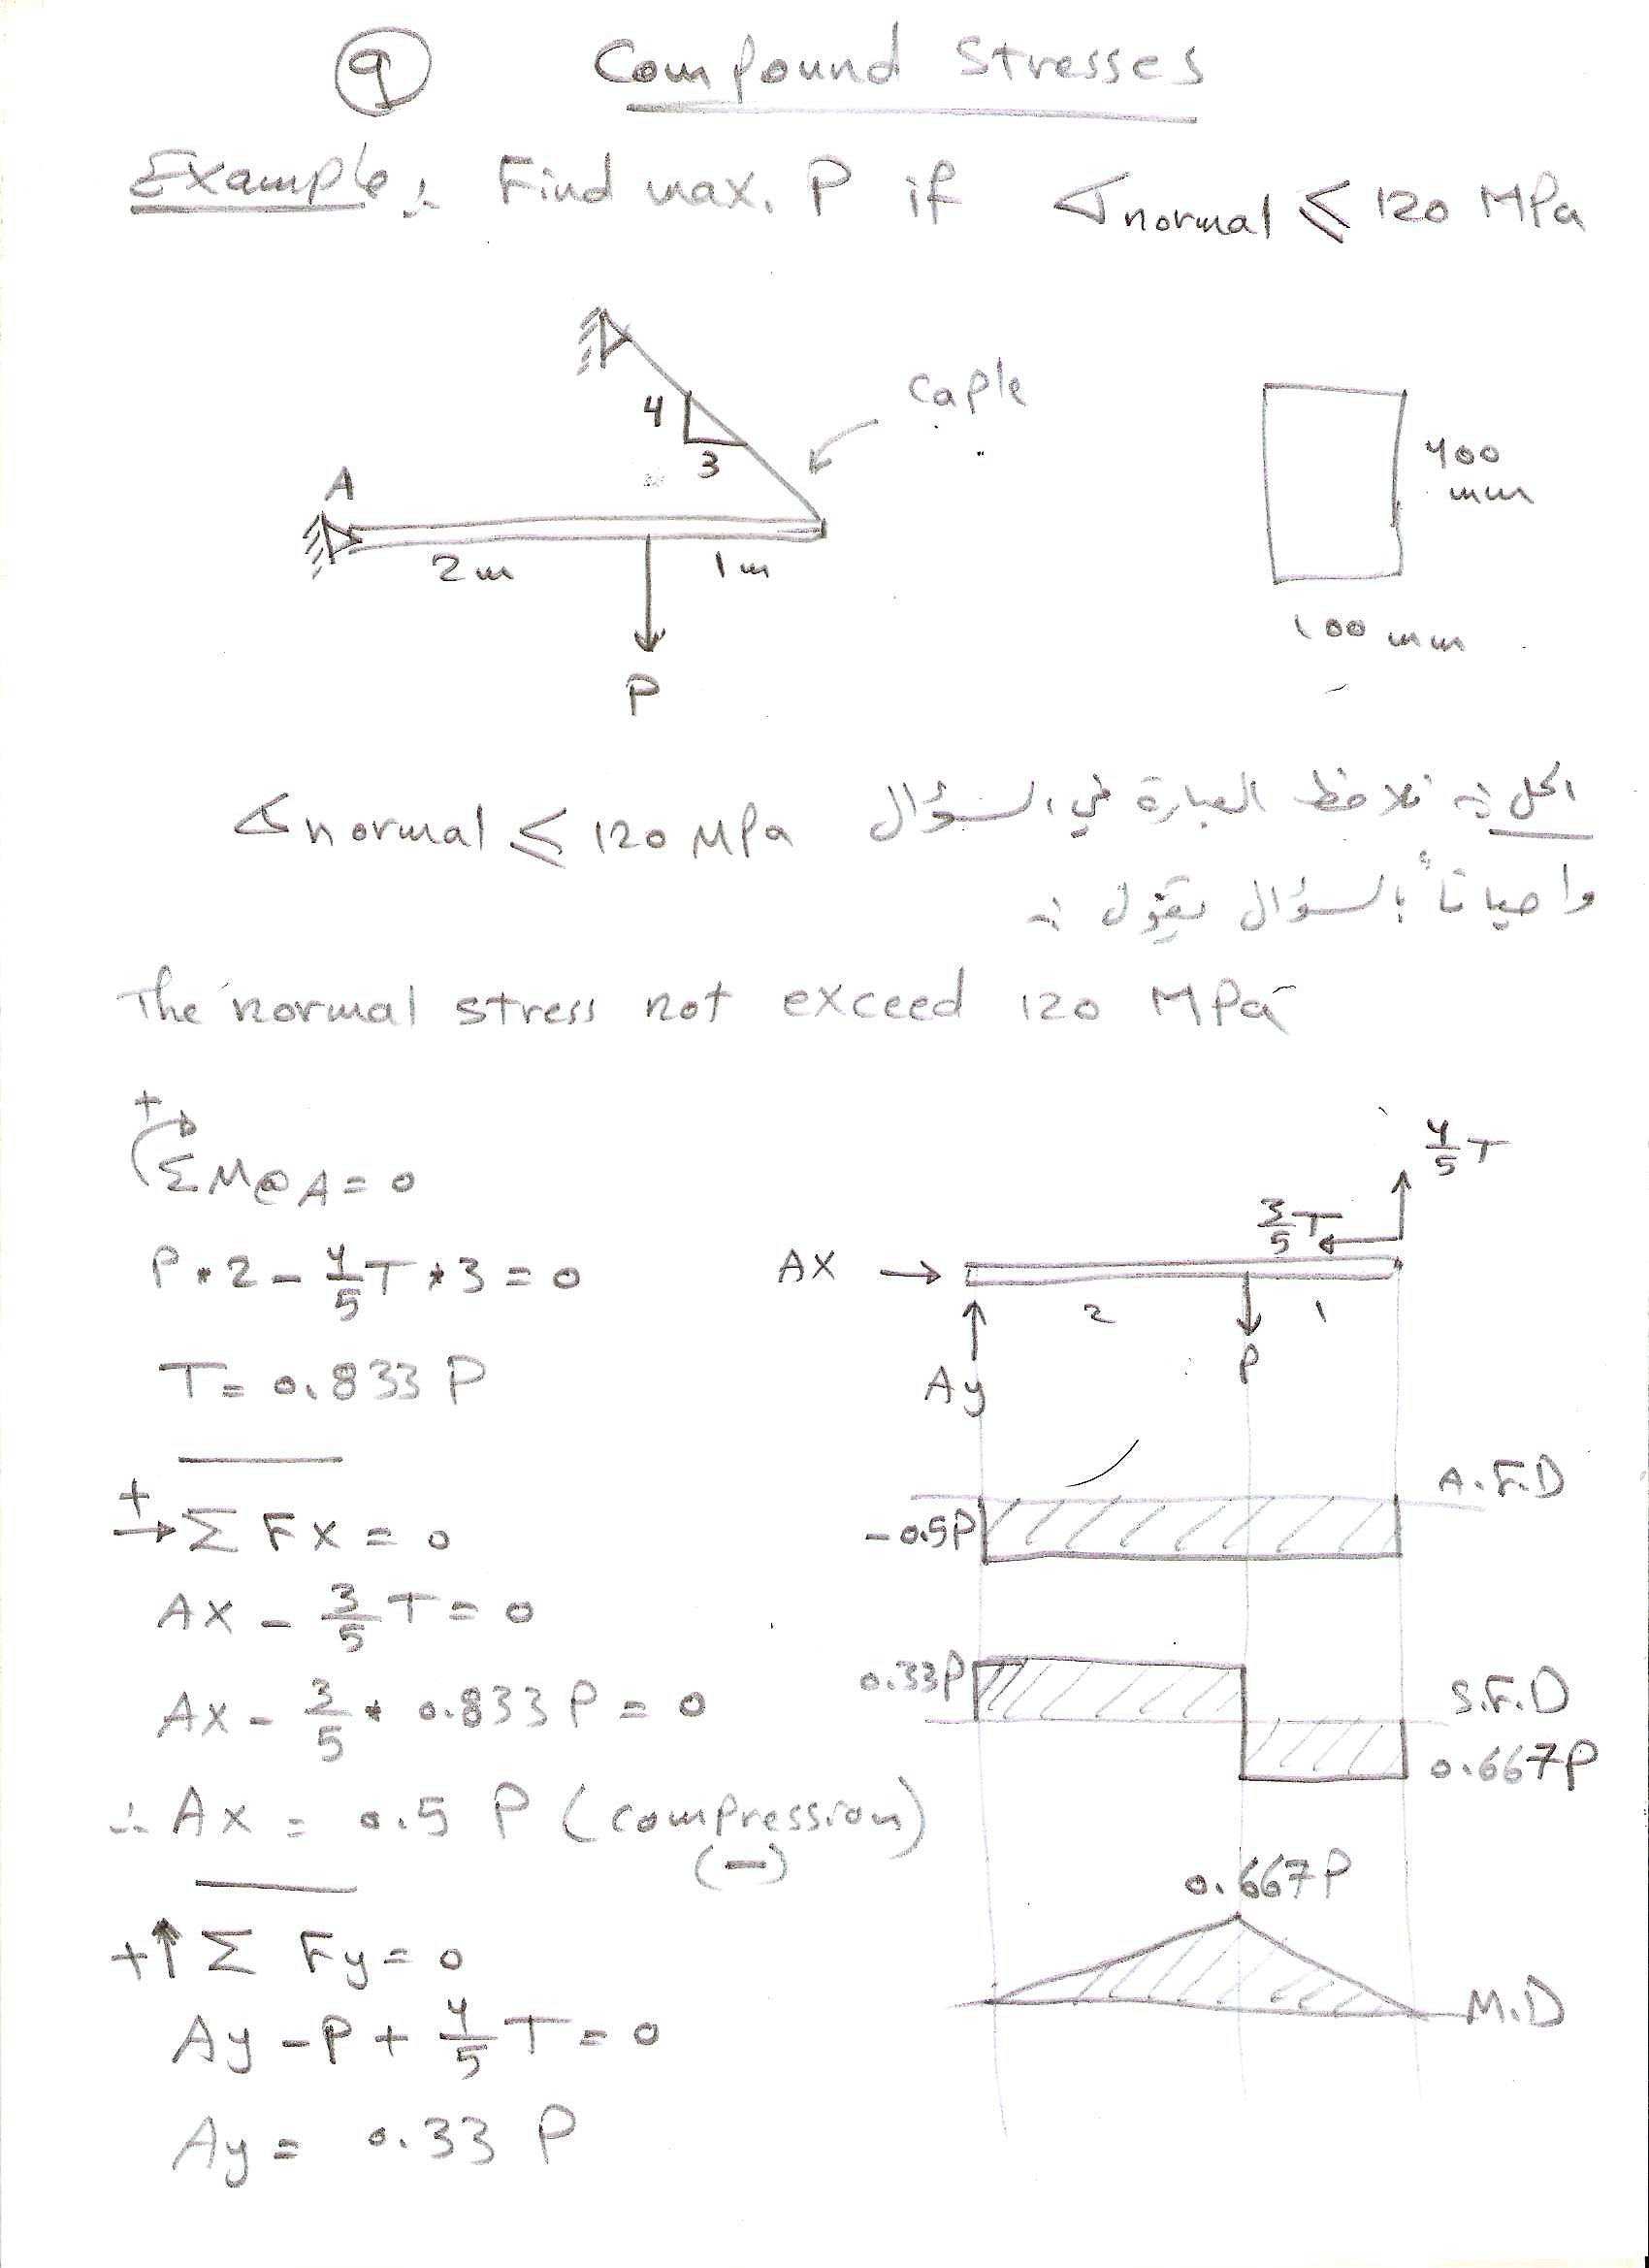 9 Compound Stresses
Example:- Find max. P if σnormal ≤ 120 MPa
4
3
caple
A
2m
1m
P
400
mm
100 mm
الحل :- نلاحظ العبارة في السؤال σnormal ≤ 120 MPa
واحياناً بالسؤال يقول :-
The normal stress not exceed 120 MPa
+
ΣM@A = 0
P*2 - 4/5 T*3 = 0
T = 0.833 P
+
→ Σ FX = 0
AX - 3/5 T = 0
AX - 3/5 * 0.833 P = 0
∴ AX = 0.5 P (compression)
(-)
+↑ Σ Fy = 0
Ay - P + 4/5 T = 0
Ay = 0.33 P
4/5 T
3/5 T
AX →
2
1
P
Ay
A.F.D
-0.5P
0.33P
S.F.D
0.667P
0.667P
M.D